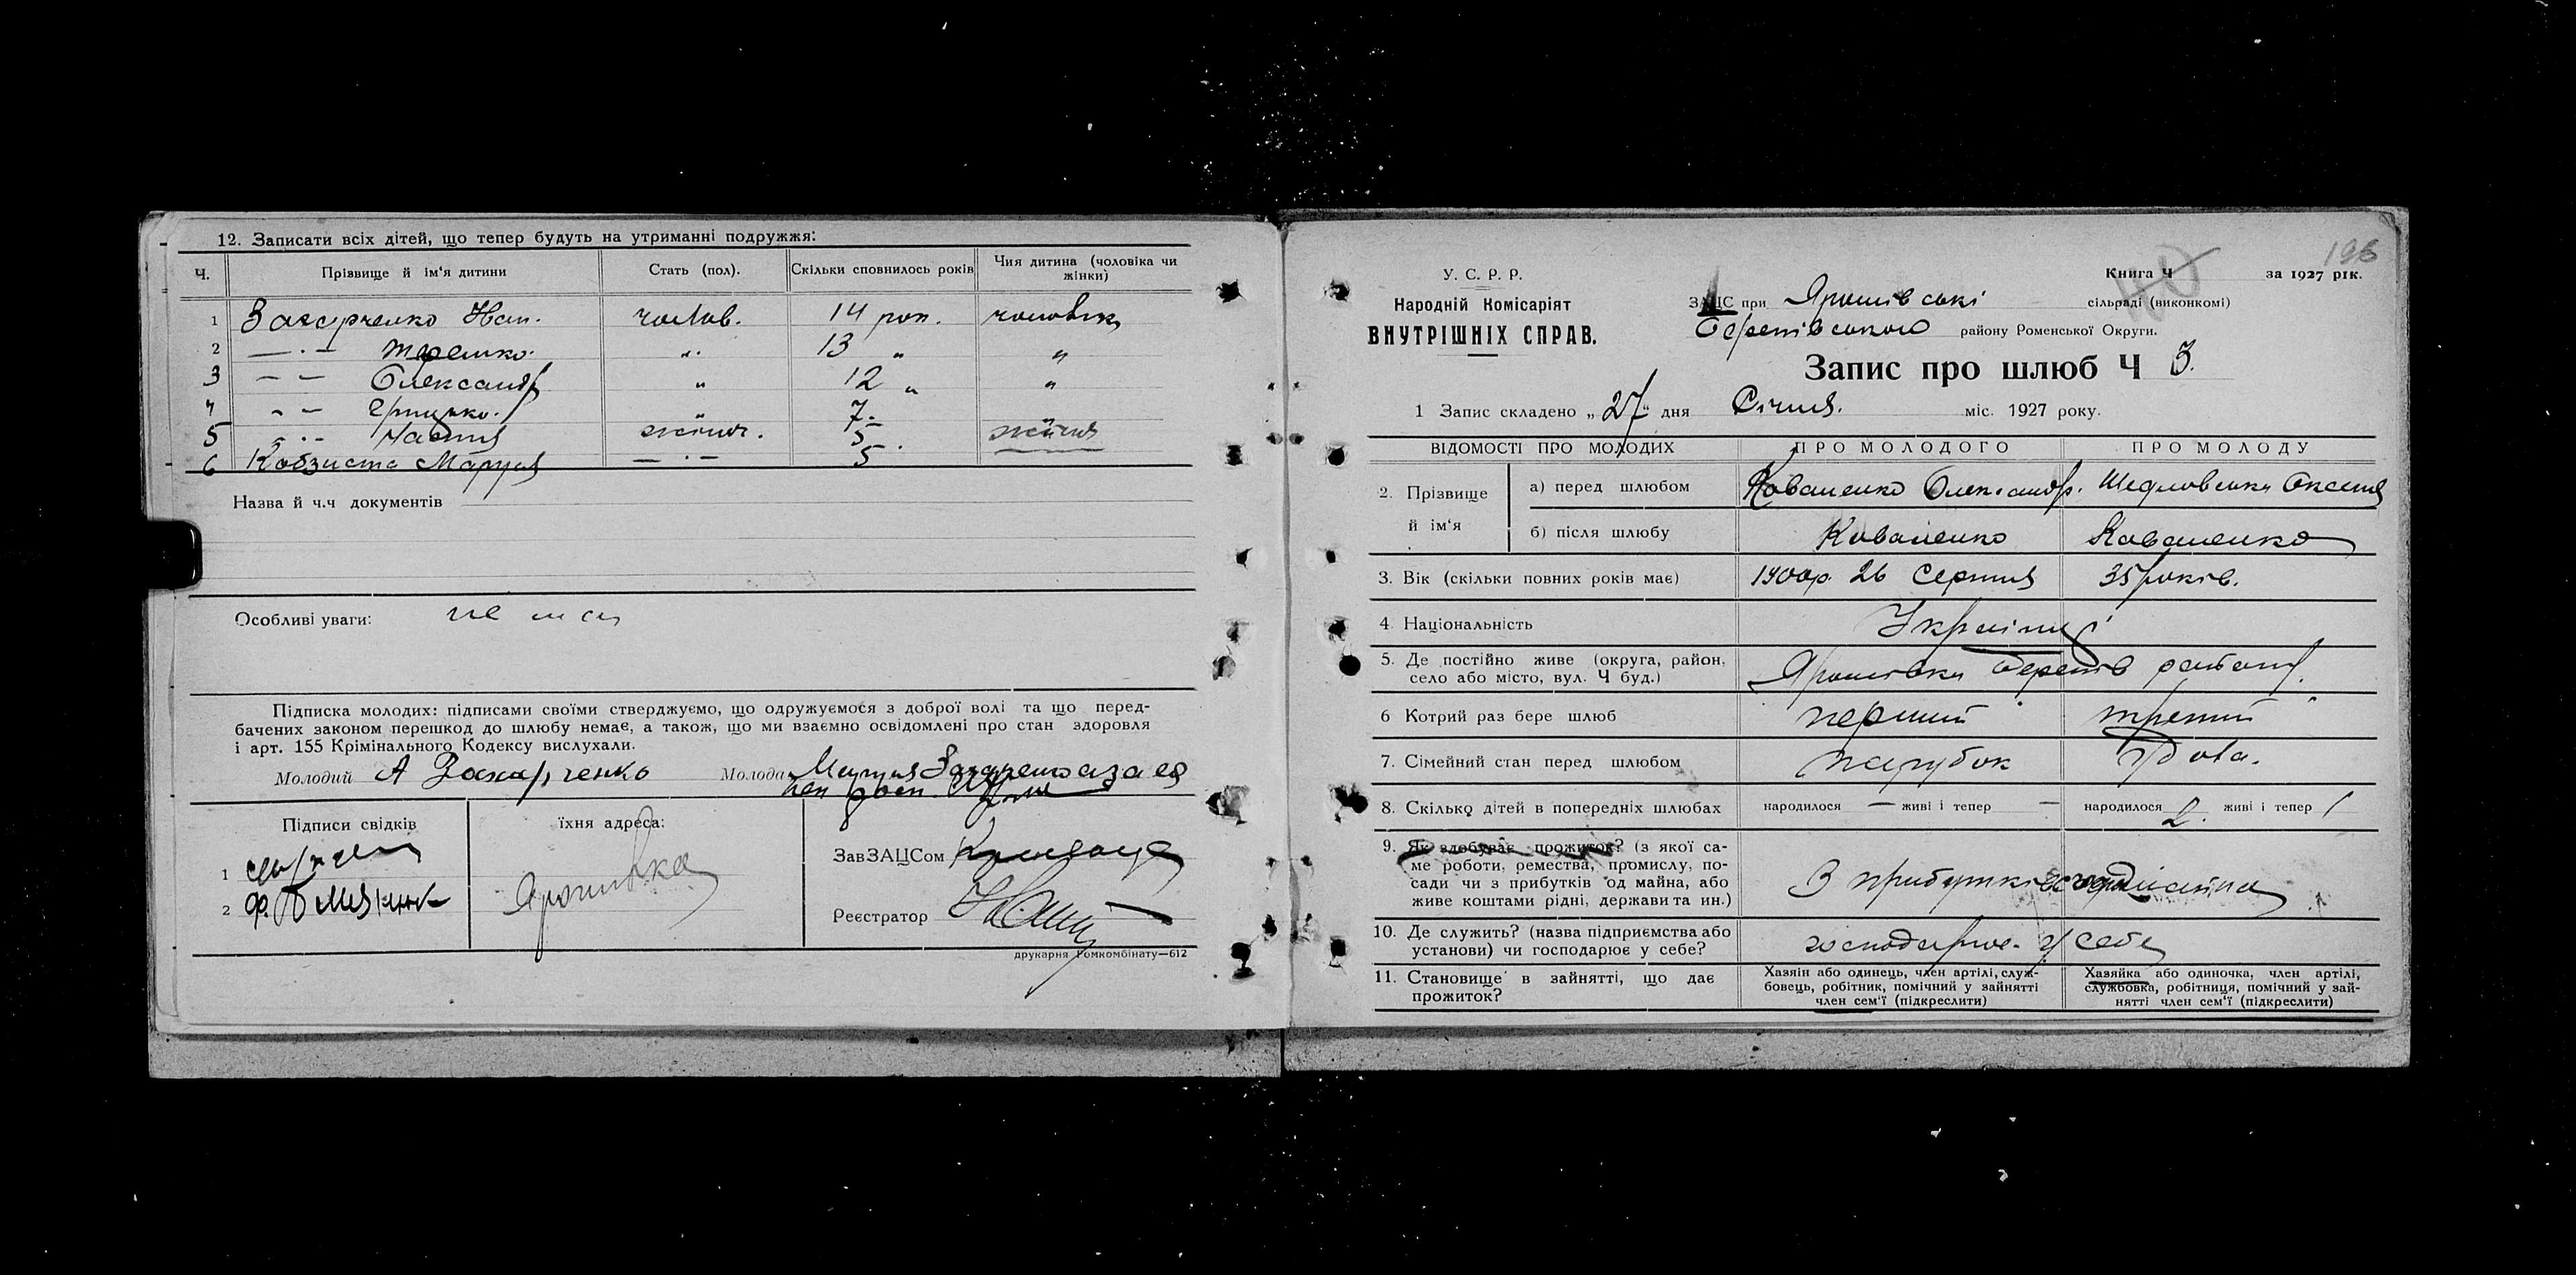 12. Записати всіх дітей, що тепер будуть на утриманні подружжя:
Ч. Прізвище й ім'я дитини Стать (пол). Скільки сповнилось років Чия дитина (чоловіка чи жінки)
1 Захарченко Іван. чолов. 14 рок. чоловік
2 —·— " 13 " "
3 — — Олександр " 12 " "
4 - — Грицько. " 7-
5 -·- жіноч. 5-. жіния
6 Кобзиста Маруся —·— 5
Назва й ч.ч документів
Особливі уваги: не ма
Підписка молодих: підписами своїми стверджуємо, що одружуємося з доброї волі та що перед-
бачених законом перешкод до шлюбу немає, а також, що ми взаємно освідомлені про стан здоровля
і арт. 155 Крімінального Кодексу вислухали.
Молодий А Захарченко Молода Захаренко а за ею
Підписи свідків їхня адреса:
1
2
Ярошівка
ЗавЗАЦСом
Реєстратор
друкарня Ромкомбінату—612
196
У. С. Р. Р.
Народній Комісаріят
ВНУТРІШНІХ СПРАВ.
Книга Ч за 1927 рік.
ЗАЦС при Ярошівські сільраді (виконкомі)
Берегівського району Роменської Округи.
Запис про шлюб Ч 3.
1 Запис складено „27" дня Січня. міс. 1927 року.
ВІДОМОСТІ ПРО МОЛОДИХ ПРО МОЛОДОГО ПРО МОЛОДУ
2. Прізвище й ім'я а) перед шлюбом Коваленко Олександр. Шедловська Оксеня
б) після шлюбу Коваленко Коваленко
3. Вік (скільки повних років має) 1900р. 26 Серпня 35 років.
4 Національність Українці
5. Де постійно живе (округа, район,
село або місто, вул. Ч буд.) Ярошівка Берегів району.
6 Котрий раз бере шлюб перший третий
7. Сімейний стан перед шлюбом парубок удова.
8. Скілько дітей в попередніх шлюбах народилося — живі і тепер — народилося 2. живі і тепер 1
9. Як здобуває прожиток? (з якої са-
ме роботи, ремества, промислу, по-
сади чи з прибутків од майна, або
живе коштами рідні, держави та ин.) З прибутків
10. Де служить? (назва підприємства або
установи) чи господарює у себе? господарює у себе
11. Становище в зайнятті, що дає
прожиток?
Хазяін або одинець, член артілі, служ-
бовець, робітник, помічний у зайнятті
член сем'ї (підкреслити)
Хазяйка або одиночка, член артілі,
службовка, робітниця, помічний у зай-
нятті член сем'ї (підкреслити)